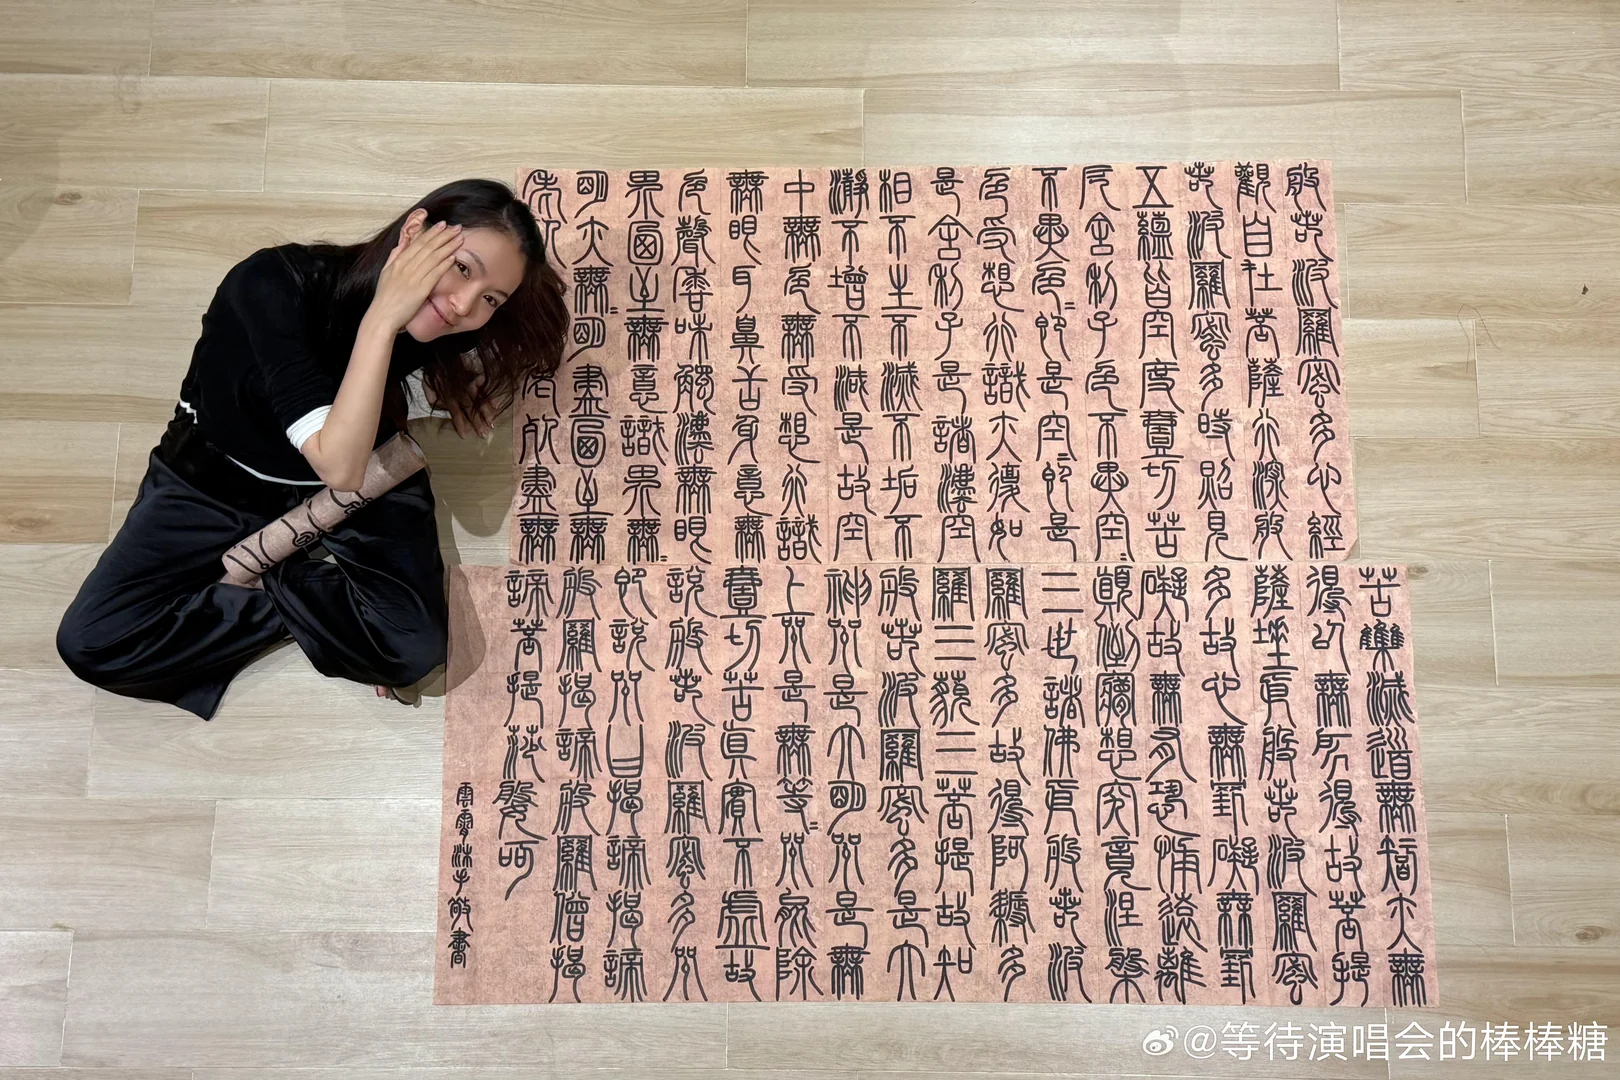 般若波羅蜜多心經
觀自在菩薩行深般
若波羅蜜多時照見
五蘊皆空度壹切苦
厄舍利子色不異空〻
不異色〻即是空〻即是
色受想行識亦復如
是舍利子是諸灋空
相不生不滅不垢不
瀞不增不減是故空
中無色無受想行識
無眼耳鼻舌身意無
色聲香味觸灋無眼
界乃至無意識界無〻
明亦無〻明盡乃至無
老死老死盡無
苦集滅道無智亦無
得以無所得故菩提
薩埵依般若波羅蜜
多故心無罣礙無罣
礙故無有恐怖遠離
顛倒夢想究竟涅槃
三世諸佛依般若波
羅蜜多故得阿耨多
羅三藐三菩提故知
般若波羅蜜多是大
神咒是大明咒是無
上咒是無等〻咒能除
壹切苦真實不虛故
說般若波羅蜜多咒
即說咒曰揭諦揭諦
般羅揭諦般羅僧揭
諦菩提莎媻呵
沐手敬書
@等待演唱会的棒棒糖